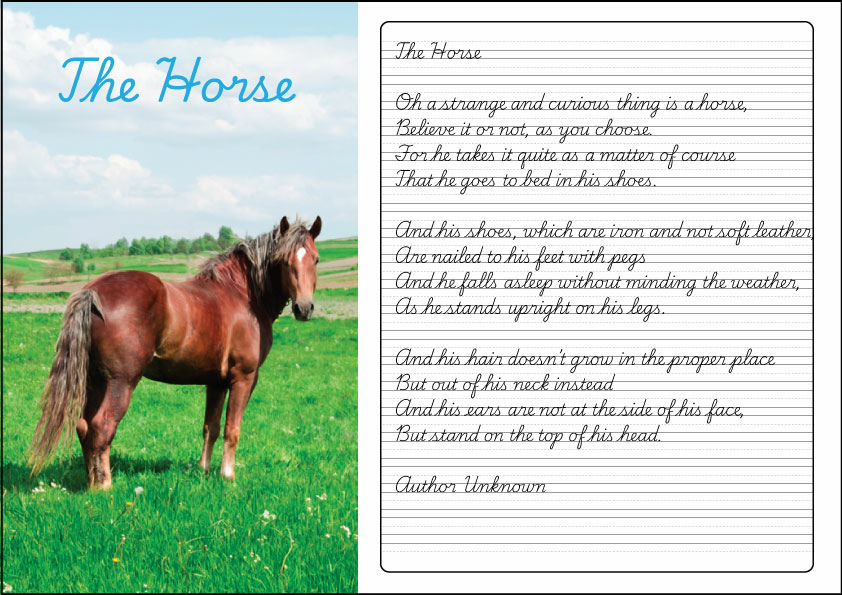 The Horse
The Horse
Oh a strange and curious thing is a horse,
Believe it or not, as you choose.
For he takes it quite as a matter of course
That he goes to bed in his shoes.
And his shoes, which are iron and not soft leather,
Are nailed to his feet with pegs
And he falls asleep without minding the weather,
As he stands upright on his legs.
And his hair doesn't grow in the proper place
But out of his neck instead
And his ears are not at the side of his face,
But stand on the top of his head.
Author Unknown